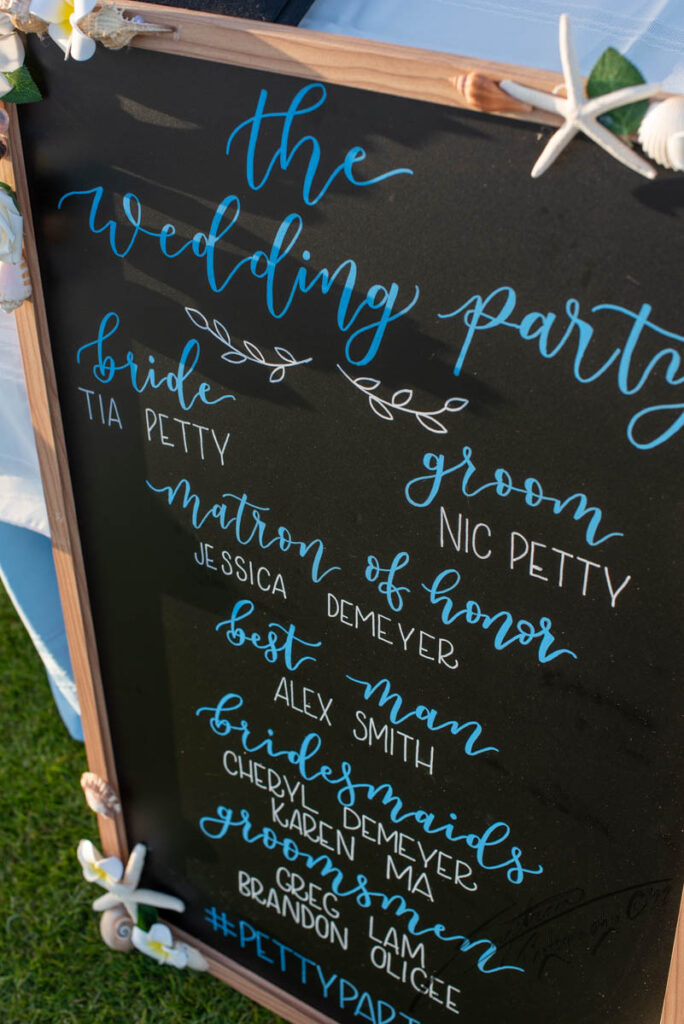 the
wedding party
bride
TIA PETTY
groom
NIC PETTY
matron of honor
JESSICA DEMEYER
best man
ALEX SMITH
bridesmaids
CHERYL DEMEYER
KAREN MA
groomsmen
GREG LAM
BRANDON OLIGEE
#PETTYPART